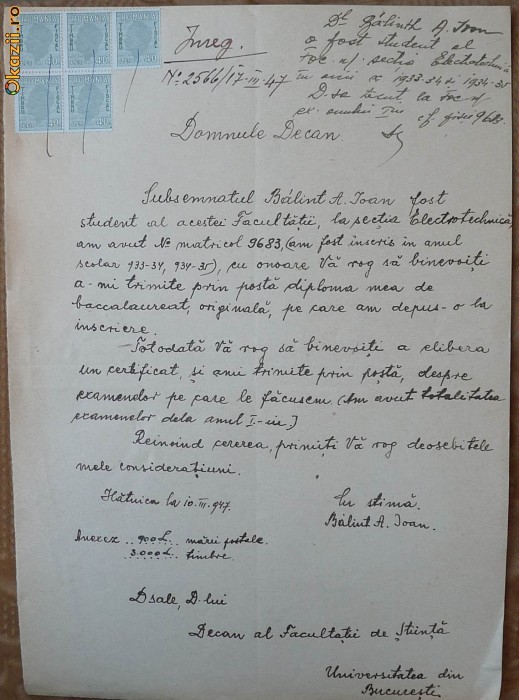 Okazii.ro
ROMANIA
TIMBRU FISCAL
40
Inreg.
Nº 2566/17-III-47
Dl. Bálinth A. Ioan
a fost student al
Fac. n/ secția Electrotehnică
în anii 1933-34 și 1934-35
D-sa a trecut la Fac. n/
cf. 9683.
Domnule Decan.
Subsemnatul Bálint A. Ioan fost
student al acestei Facultății, la secția Electrotechnică,
am avut Nº matricol 9683, (am fost inscris in anul
scolar 933-34, 934-35), cu onoare Vă rog să binevoiți
a-mi trimite prin postă diploma mea de
baccalaureat, originală, pe care am depus-o la
inscriere.
Totodată Vă rog să binevoiți a elibera
un certificat, și ami trimite prin poștă, despre
examenelor pe care le făcusem. (Am avut totalitatea
examenelor dela anul I-iu.)
Reinoind cererea, primiți Vă rog deosebitele
mele considerațiuni.
la 10.III.947.
Cu stimă.
Bálint A. Ioan.
Anexez .. 900 L. mărci postale.
3.000 L. timbre.
Dsale, D-lui
Decan al Facultății de Știință
Universitatea din
București.